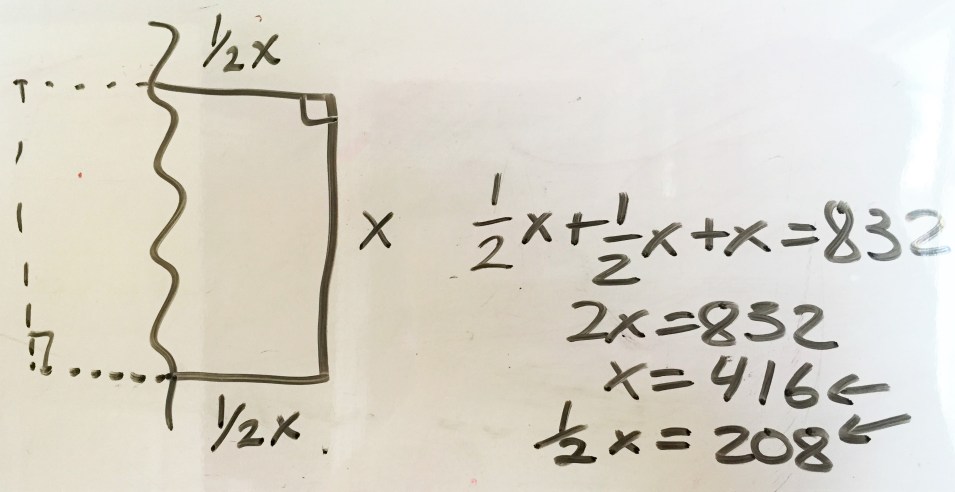 ½x
x
½x
½x+½x+x=832
2x=832
x=416←
½x=208←